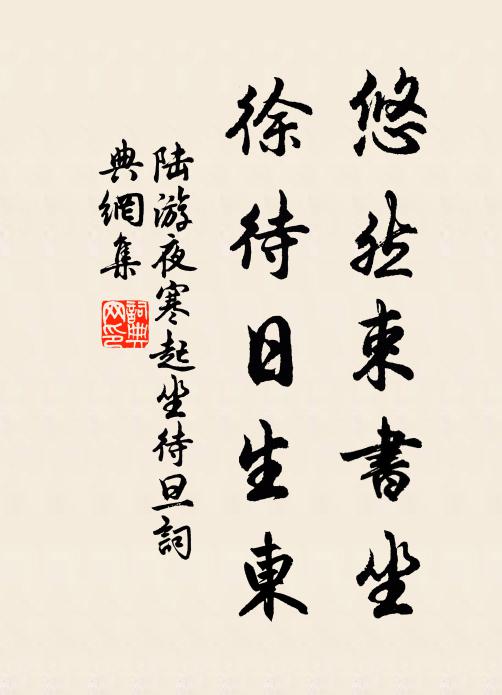 悠然束書坐
徐待日生東
陸游夜寒起坐待旦詞
典網集
詞典
网印